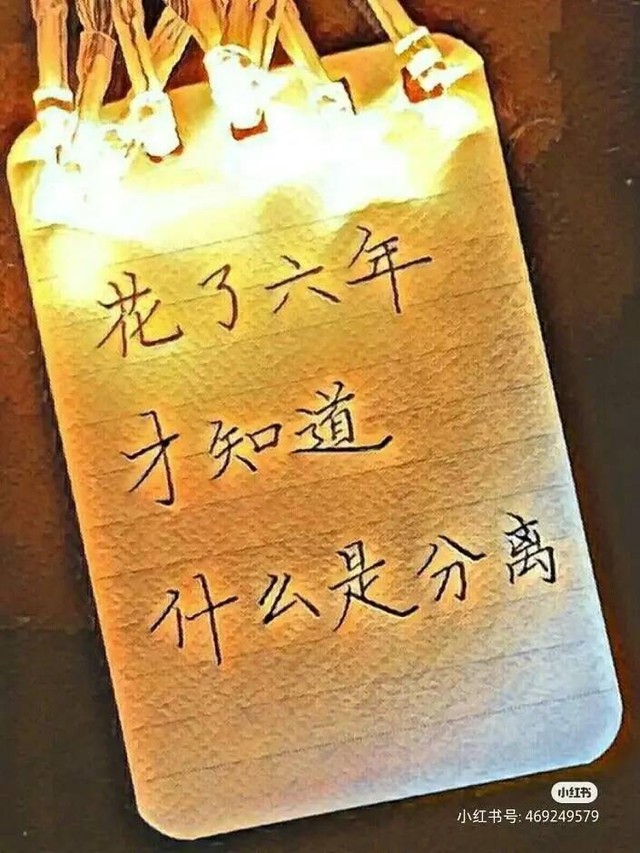 花了六年
才知道
什么是分离
小红书
小红书号: 469249579